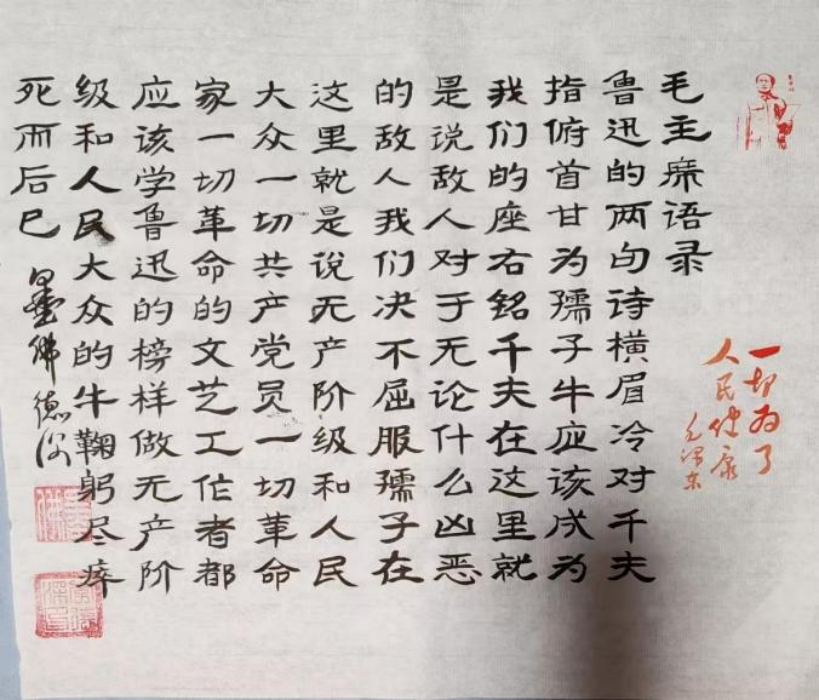 一切为了
人民健康
毛泽东
毛主席语录
鲁迅的两句诗横眉冷对千夫
指俯首甘为孺子牛应该成为
我们的座右铭千夫在这里就
是说敌人对于无论什么凶恶
的敌人我们决不屈服孺子在
这里就是说无产阶级和人民
大众一切共产党员一切革命
家一切革命的文艺工作者都
应该学鲁迅的榜样做无产阶
级和人民大众的牛鞠躬尽瘁
死而后已
墨佛德深